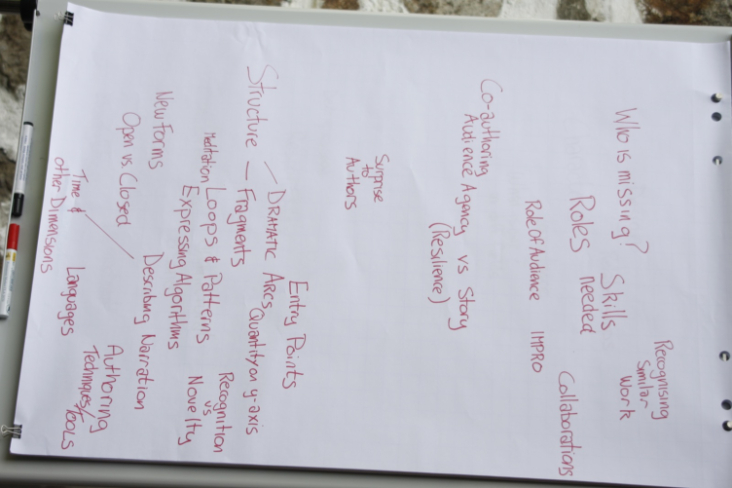 Who is missing?
Roles
needed
Skills
Recognising
Similar
Work
Role of Audience
IMPRO
Collaborations
Co-authoring
Audience Agency vs Story
(Resilience)
Surprise
to
Authors
Entry Points
Structure — DRAMATIC ARCS
— Fragments
Quantity on y-axis
Meditation
Loops & Patterns
Recognition
vs
Novelty
Expressing Algorithms
New Forms
Open vs Closed
Describing Narration
Time &
other Dimensions
Languages
Authoring
Techniques/TOOLS